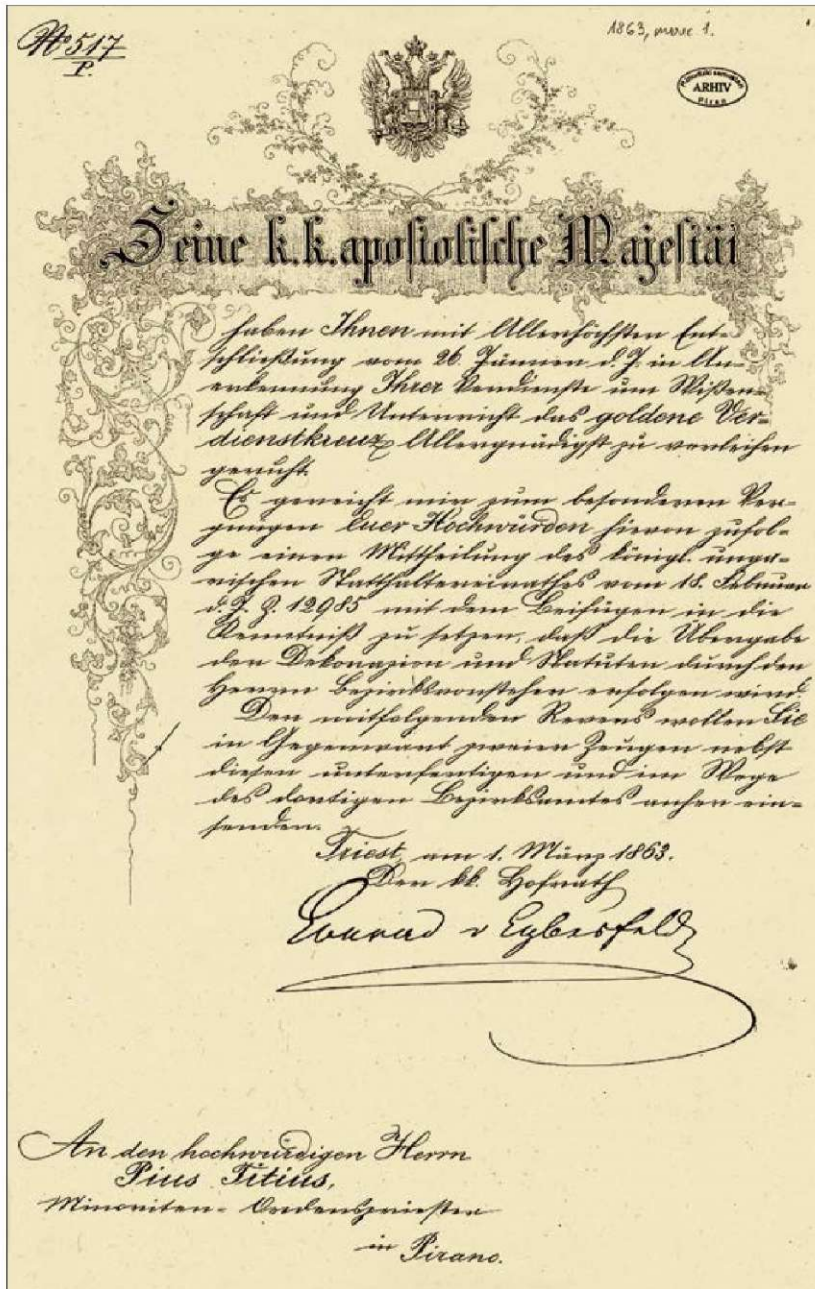 No 517
P.
1863, marec 1.
ARHIV
Seine k. k. apostolische Majestät
haben Ihnen mit Allerhöchster Ent-
schließung vom 26. Jänner d. J. in An-
erkennung Ihrer Verdienste um Wißen-
schaft und Unterricht das goldene Ver-
dienstkreuz Allergnädigst zu verleihen
geruht.
Es gereicht mir zum besonderen Ver-
gnügen Euer Hochwürden hievon zufol-
ge einer Mittheilung des königl. unga-
rischen Statthaltereirathes vom 18. Februar
d. J. Z. 12985 mit dem Beifügen in die
Kenntniß zu setzen, daß die Übergabe
der Dekorazion und Statuten durch den
Herrn Bezirksvorsteher erfolgen wird.
Den mitfolgenden Revers wollen Sie
in Gegenwart zweier Zeugen nebst
diesen unterfertigen und im Wege
des dortigen Bezirksamtes anher ein-
senden.
Triest, am 1. März 1863.
Der kk. Hofrath
Conrad v Eybesfeld
An den hochwürdigen Herrn
Pius Titius,
Minoriten-Ordenspriester
in Pirano.